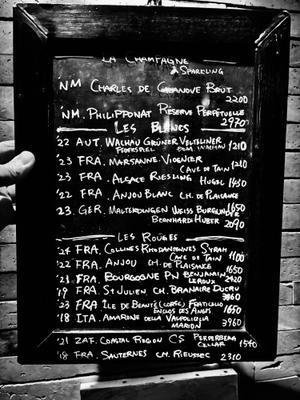 LA CHAMPAGNE
& SPARKLING
NM CHARLES DE CAZANOVE BRUT
2200
NM. PHILIPPONAT RÉSERVE PERPÉTUELLE
2970
LES BLANCS
'22 AUT. WACHAU GRÜNER VELTLINER
FEDERSPIEL DOM. WACHAU 1210
'23 FRA. MARSANNE VIOGNIER
CAVE DE TAIN 1210
'23 FRA. ALSACE RIESLING HUGEL 1430
'22 FRA. ANJOU BLANC CH. DE PLAISANCE
1650
'23. GER. MALTERDINGEN WEISS BURGUNDER
BERNHARD HUBER 2090
LES ROUGES
'24 FRA. COLLINES RHODANIENNES SYRAH
CAVE DE TAIN 1100
'22 FRA. ANJOU CH. DE PLAISANCE
1650
'21 FRA. BOURGOGNE PN BENJAMIN
LEROUX 2420
'19 FRA. ST JULIEN CH. BRANAIRE DUCRU
3960
'23 FRA ILE DE BEAUTÉ (CORSE) FRATICELLO
ENCLOS DES ANGES 1650
'18 ITA. AMARONE DELLA VALPOLICELLA
MARION 3960
'21 ZAF. COASTAL REGION CS
CELLAR 1540
'18 FRA. SAUTERNES CH. RIEUSSEC 2310